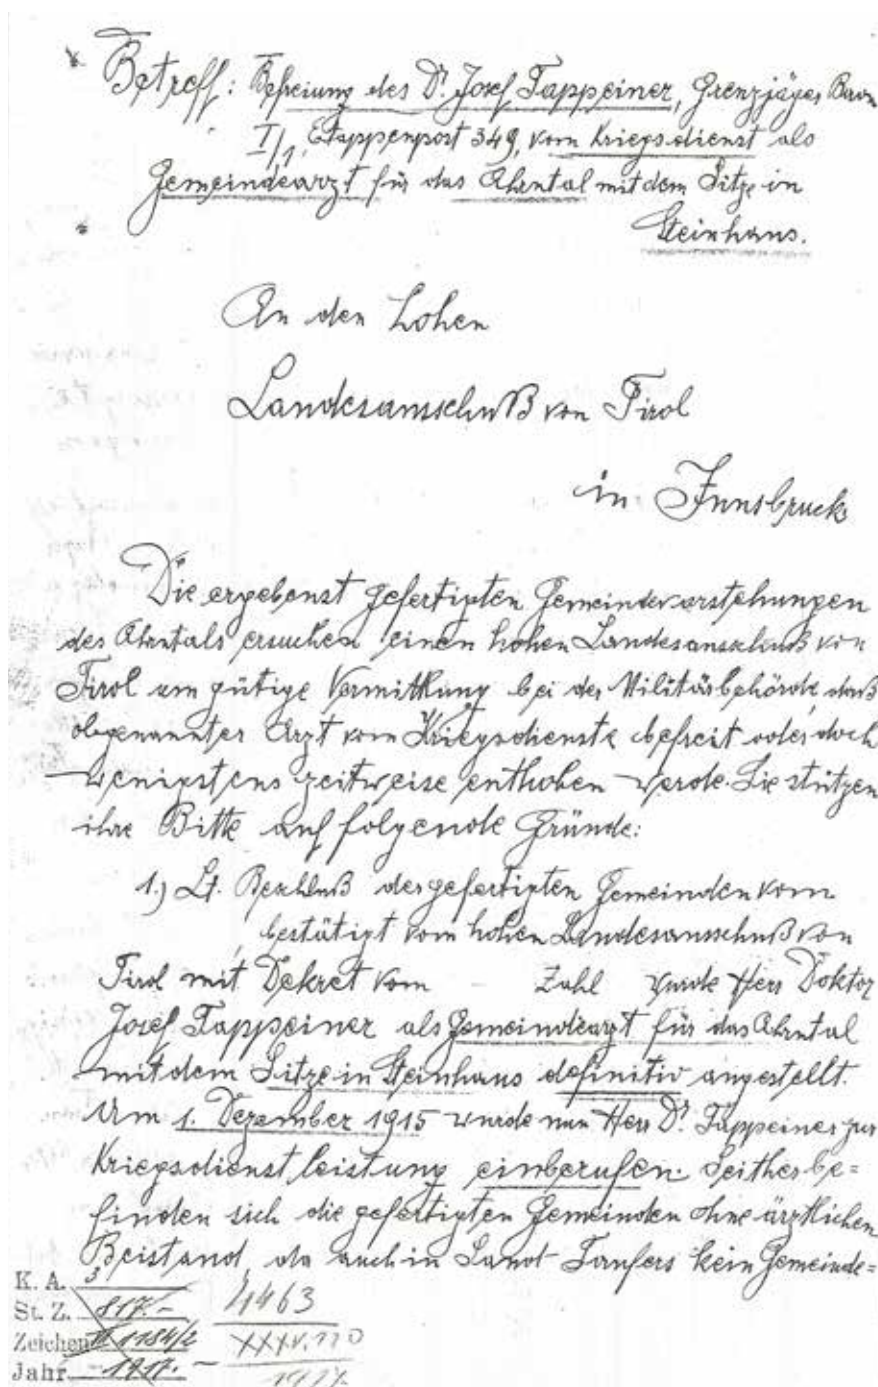 Betreff: Befreiung des Dr. Josef Tappeiner, Grenzjäger Baon
I/1, Etappenpost 349, vom Kriegsdienst als
Gemeindearzt für das Ahrntal mit dem Sitze in
Steinhaus.
An den hohen
Landesausschuß von Tirol
in Innsbruck
Die ergebenst gefertigten Gemeindevorstehungen
des Ahrntals ersuchen einen hohen Landesausschuß von
Tirol um gütige Vermittlung bei der Militärbehörde, daß
obgenannter Arzt vom Kriegsdienste befreit oder doch
wenigstens zeitweise enthoben werde. Sie stützen
ihre Bitte auf folgende Gründe:
1.) Lt. Beschluß der gefertigten Gemeinden vom
bestätigt vom hohen Landesausschuß von
Tirol mit Dekret vom - Zahl wurde Herr Doktor
Josef Tappeiner als Gemeindearzt für das Ahrntal
mit dem Sitze in Steinhaus definitiv angestellt.
Am 1. Dezember 1915 wurde nun Herr Dr. Tappeiner zur
Kriegsdienstleistung einberufen. Seither be=
finden sich die gefertigten Gemeinden ohne ärztlichen
Beistand, da auch in Sand Taufers kein Gemeinde=
K. A.
St. Z. 817.- 4463
Zeichen 1184/2 XXXV.110
Jahr 1917. - 1917